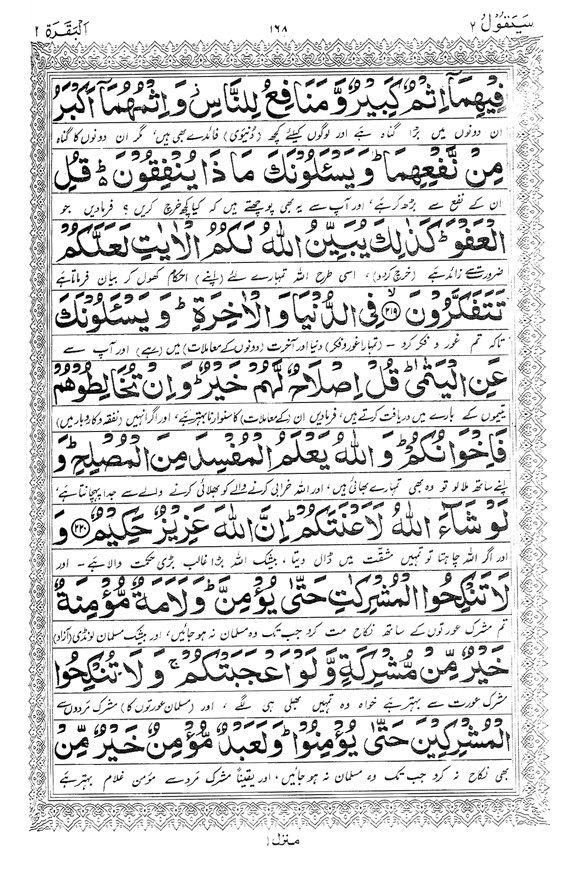 سَيَقُوْلُ ٢ ١٦٨ اَلْبَقَرَة ٢
فِيْهِمَاۤ اِثْمٌ كَبِيْرٌ وَّ مَنَافِعُ لِلنَّاسِ ز وَ اِثْمُهُمَاۤ اَكْبَرُ
ان دونوں میں بڑا گناہ ہے اور لوگوں کیلئے کچھ (دُنیوی) فائدے بھی ہیں، مگر ان دونوں کا گناہ
مِنْ نَّفْعِهِمَا ؕ وَ يَسْـَٔلُوْنَكَ مَا ذَا يُنْفِقُوْنَ ؕ۬ قُلِ
ان کے نفع سے بڑھ کر ہے، اور آپ سے یہ بھی پوچھتے ہیں کہ کیا کچھ خرچ کریں؟ فرما دیں جو
الْعَفْوَ ؕ كَذٰلِكَ يُبَيِّنُ اللّٰهُ لَكُمُ الْاٰيٰتِ لَعَلَّكُمْ
ضرورت سے زائد ہے (خرچ کر دو)، اسی طرح اللہ تمہارے لئے (اپنے) احکام کھول کر بیان فرماتا ہے
تَتَفَكَّرُوْنَ ۙ﴿۲۱۹﴾ فِى الدُّنْيَا وَ الْاٰخِرَةِ ؕ وَ يَسْـَٔلُوْنَكَ
تاکہ تم غور و فکر کرو - (تمہارا غور و فکر) دنیا اور آخرت (دونوں کے معاملات) میں (رہے) اور آپ سے
عَنِ الْيَتٰمٰى ؕ قُلْ اِصْلَاحٌ لَّهُمْ خَيْرٌ ؕ وَ اِنْ تُخَالِطُوْهُمْ
یتیموں کے بارے میں دریافت کرتے ہیں، فرما دیں ان (کے معاملات) کا سنوارنا بہتر ہے، اور اگر انہیں (نفقہ و کاروبار میں)
فَاِخْوَانُكُمْ ؕ وَ اللّٰهُ يَعْلَمُ الْمُفْسِدَ مِنَ الْمُصْلِحِ ؕ وَ
اپنے ساتھ ملا لو تو وہ بھی تمہارے بھائی ہیں، اور اللہ خرابی کرنے والے کو بھلائی کرنے والے سے جدا پہچانتا ہے،
لَوْ شَآءَ اللّٰهُ لَاَعْنَتَكُمْ ؕ اِنَّ اللّٰهَ عَزِيْزٌ حَكِيْمٌ ﴿۲۲۰﴾ وَ
اور اگر اللہ چاہتا تو تمہیں مشقّت میں ڈال دیتا، بیشک اللہ بڑا غالب بڑی حکمت والا ہے - اور
لَا تَنْكِحُوا الْمُشْرِكٰتِ حَتّٰى يُؤْمِنَّ ؕ وَ لَاَمَةٌ مُّؤْمِنَةٌ
تم مشرک عورتوں کے ساتھ نکاح مت کرو جب تک وہ مسلمان نہ ہو جائیں، اور بیشک مسلمان لونڈی (آزاد)
خَيْرٌ مِّنْ مُّشْرِكَةٍ وَّ لَوْ اَعْجَبَتْكُمْ ۚ وَ لَا تُنْكِحُوا
مشرک عورت سے بہتر ہے خواہ وہ تمہیں بھلی ہی لگے، اور (مسلمان عورتوں کا) مشرک مَردوں سے
الْمُشْرِكِيْنَ حَتّٰى يُؤْمِنُوْا ؕ وَ لَعَبْدٌ مُّؤْمِنٌ خَيْرٌ مِّنْ
بھی نکاح نہ کرو جب تک وہ مسلمان نہ ہو جائیں، اور یقیناً مشرک مَرد سے مؤمن غلام بہتر ہے
منزل ١